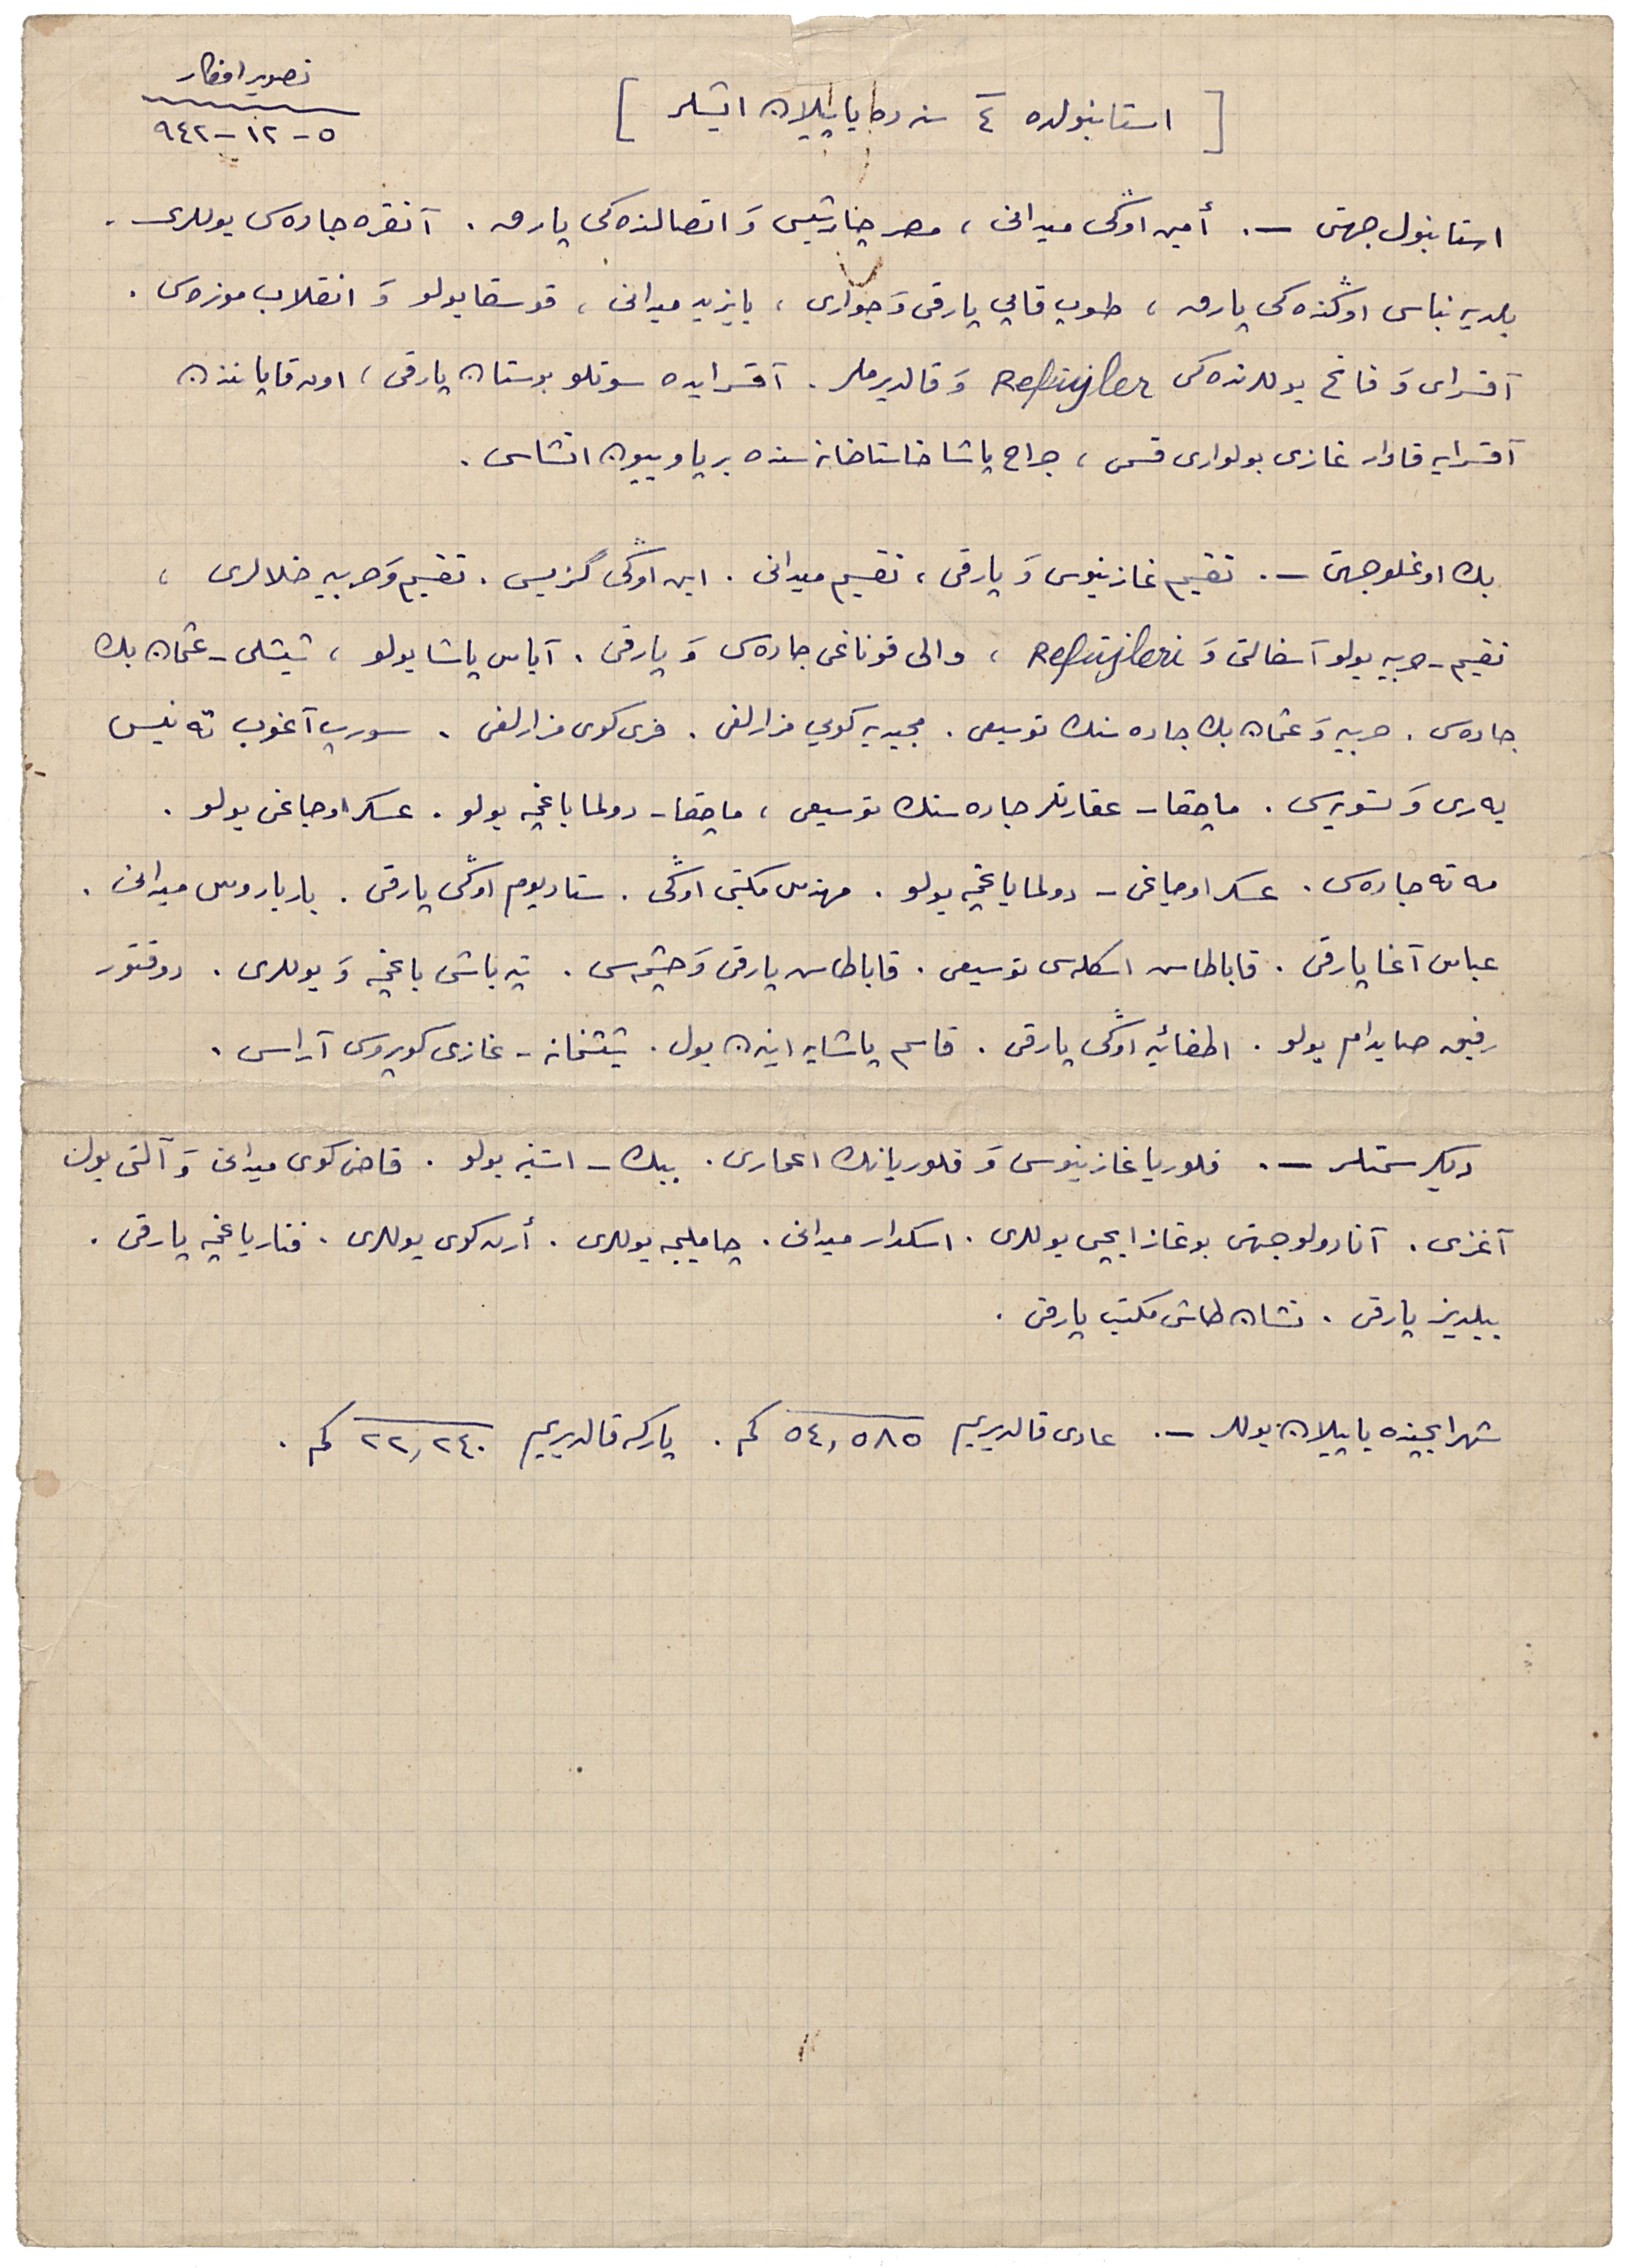 تصویر افكار
٥-١٢-٩٤٢
[ استانبولده ٤ سنه ده یاپیلان ایشلر ]
استانبول جهتی —. أمین اوڭی میدانی ، مصر چارشیسی وَ اتصالنده كی پارق . آنقره جاده سی یوللری .
بلدیه بناسی اوڭنده كی پارق ، طوپ قاپی پارقی وَ جواری ، بایزید میدانی ، قوسقا یولو وَ انقلاب موزه سی .
آقسرای وَ فاتح یوللرنده كی Refüjler وَ قالدیرملر . آقسرایده سوتلو بوستان پارقی ، اون قاپانندن
آقسرایه قادار غازی بولواری قسمی ، جراح پاشا خاستاخانه سنده بر پاویيون انشاسی .
بك اوغلو جهتی —. تقسیم غازینوسی وَ پارقی ، تقسیم میدانی . این اوڭی گزیسی . تقسیم وَ حربیه خلالری ،
تقسیم - حربیه یولو آسفالتی وَ Refüjleri ، والی قوناغی جاده سی وَ پارقی . آیاس پاشا یولو ، شیشلی - عثمان بك
جاده سی . حربیه وَ عثمان بك جاده سنك توسیعی . مجیدیه كویی مزارلغی . فری كوی مزارلغی . سورپ آغوپ ته نیس
یه ری وَ تسویه سی . ماچقا - عقارتلر جاده سنك توسیعی ، ماچقا - دولما باغچه یولو . عسكر اوجاغی یولو .
مه ته جاده سی . عسكر اوجاغی - دولما باغچه یولو . مهندس مكتبی اوڭی . ستادیوم اوڭی پارقی . بارباروس میدانی .
عباس آغا پارقی . قاباطاش اسكله سی توسیعی . قاباطاش پارقی وَ چشمه سی . تپه باشی باغچه وَ یوللری . دوقتور
رفیق صایدام یولو . اطفائیه اوڭی پارقی . قاسم پاشایه اینن یول . شیشخانه - غازی كوپروسی آراسی .
دیگر سمتلر —. فلوریا غازینوسی وَ فلوریانك اعماری . ببك - استنیه یولو . قاضی كوی میدانی وَ آلتی یول
آغزی . آنادولو جهتی بوغاز ایچی یوللری . اسكدار میدانی . چاملیجه یوللری . أرن كوی یوللری . فنار باغچه پارقی .
ییلدیز پارقی . نشان طاش مكتب پارقی .
شهر ایچنده یاپیلان یوللر —. عادی قالدیریم ٥٤,٥٨٥ كم . پاركه قالدیریم ٢٢,٢٤٠ كم .